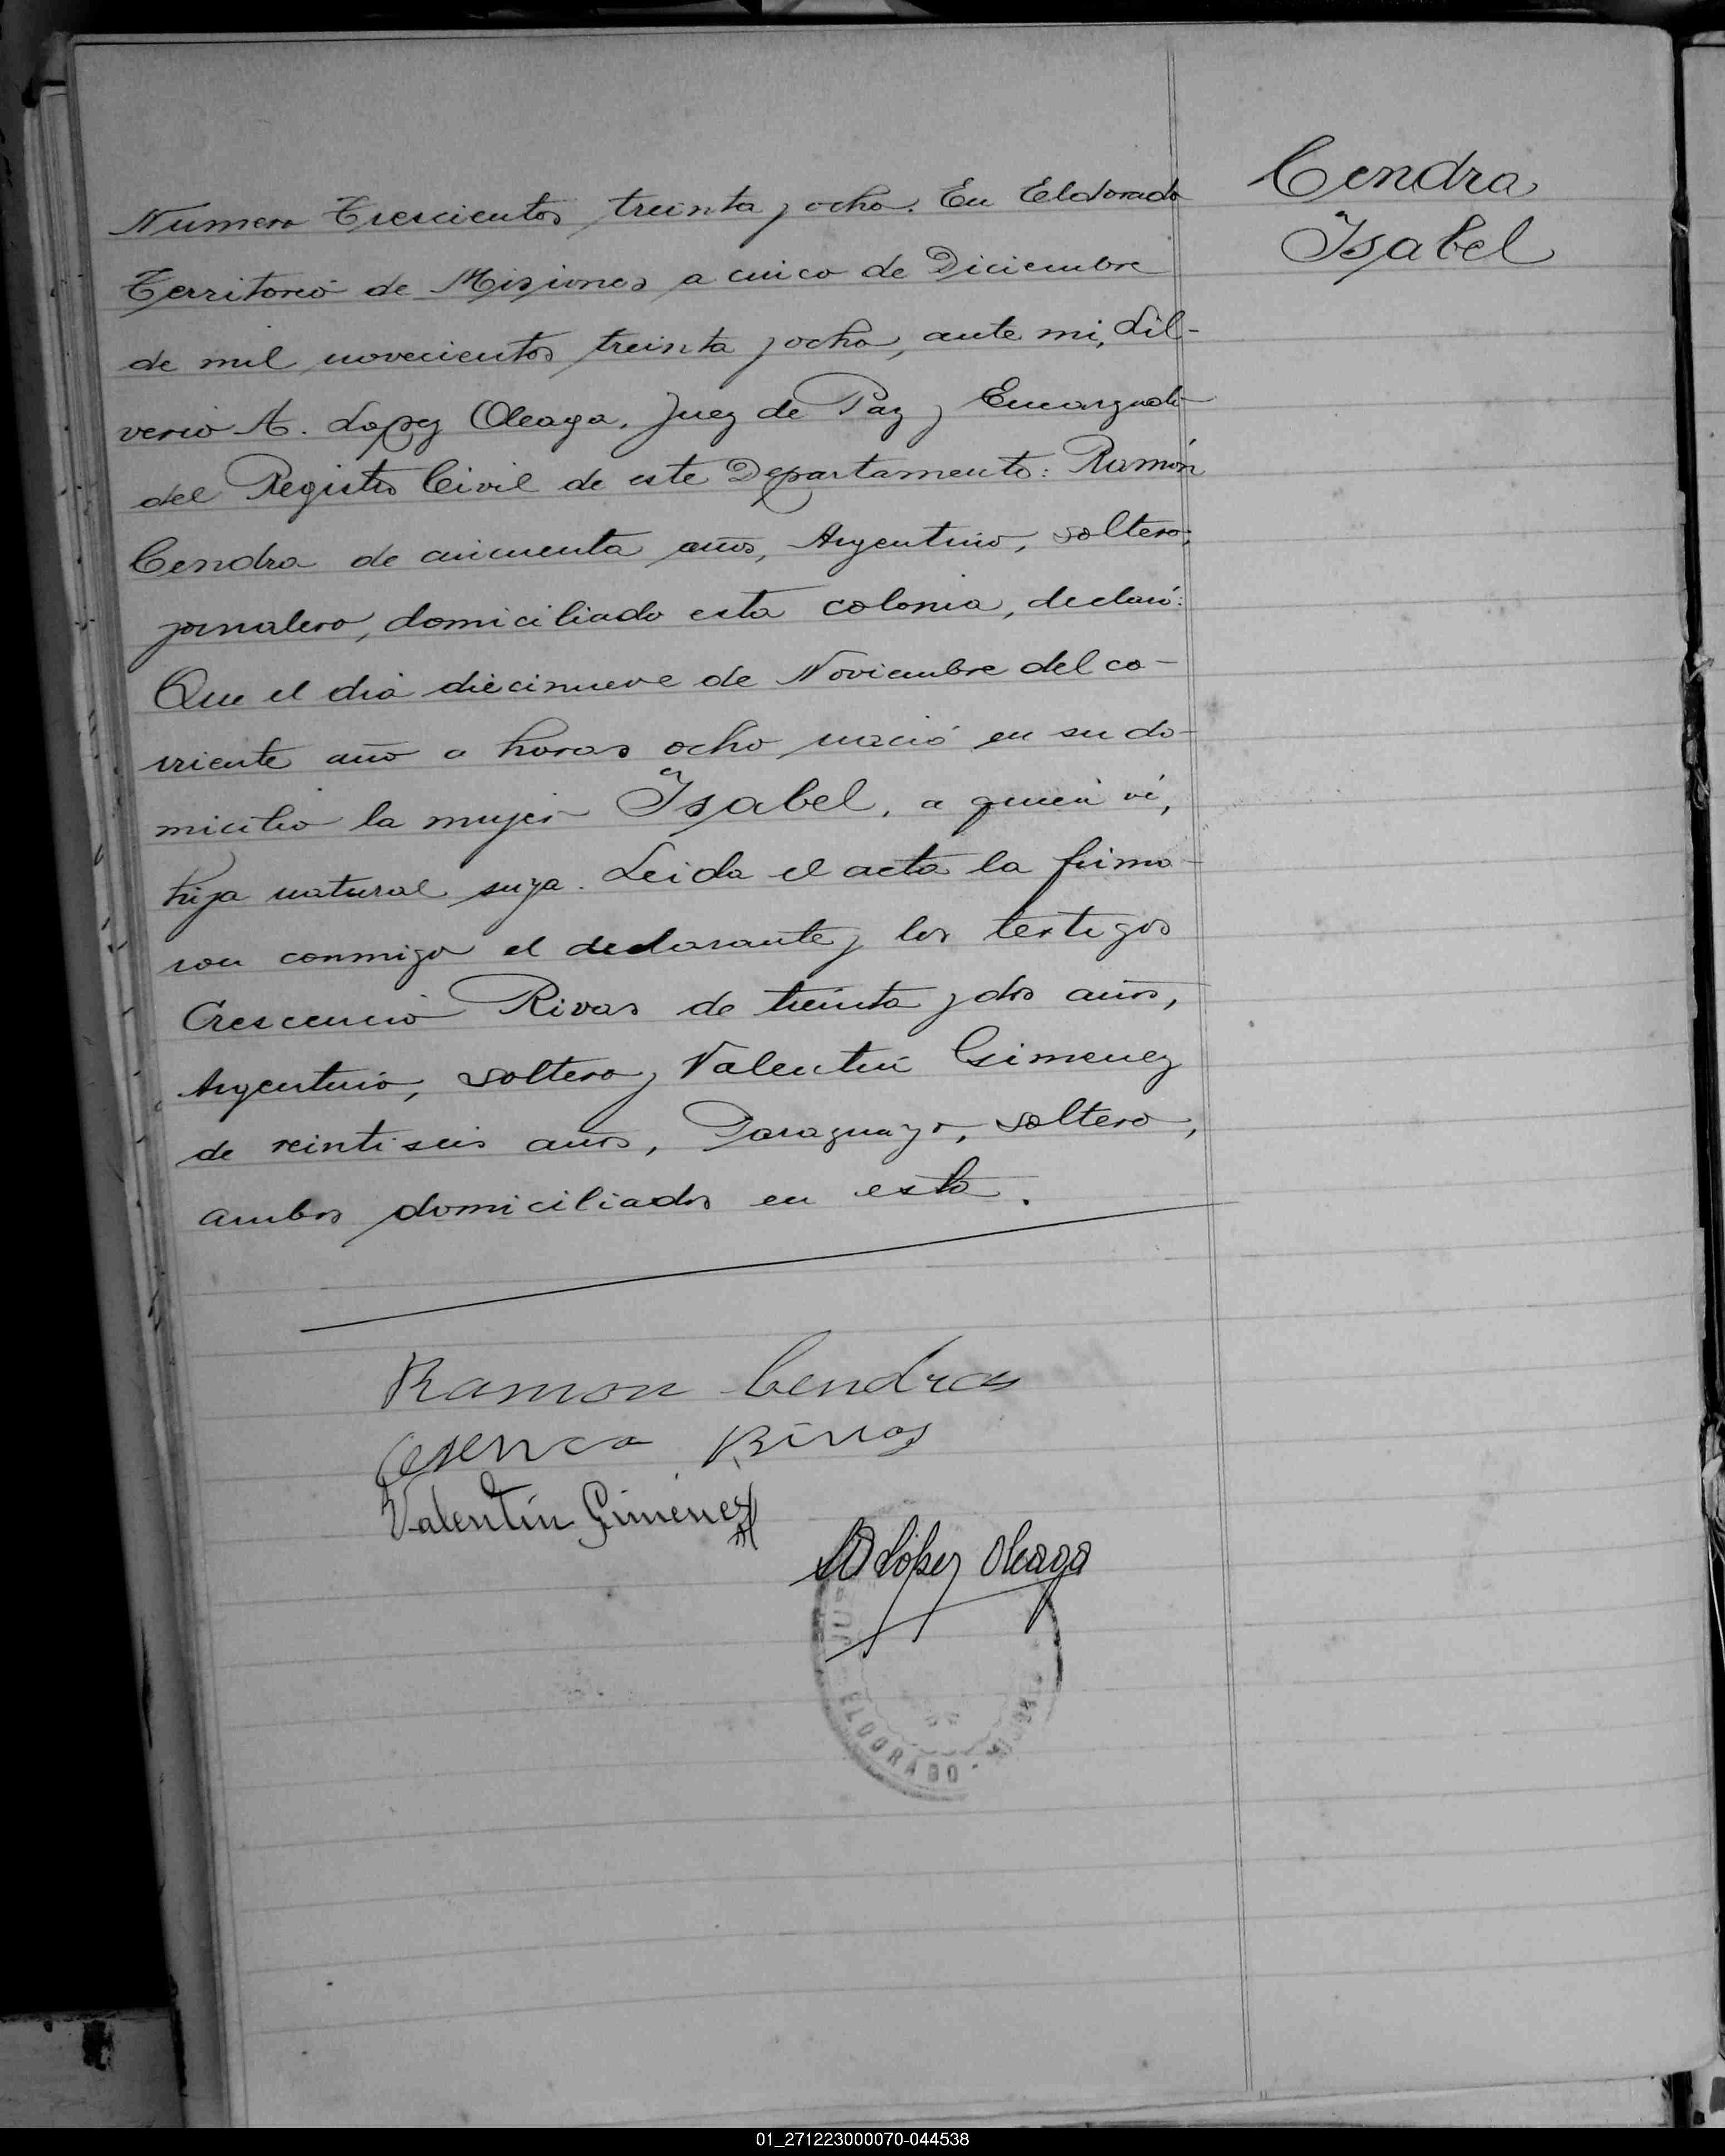 Cendra
Isabel
Numero Trescientos treinta y ocho. En Eldorado
Territorio de Misiones a cinco de Diciembre
de mil novecientos treinta y ocho, ante mi, Lil-
verio A. Lopez Oleaga, Juez de Paz y Encargado
del Registro Civil de este Departamento: Ramón
Cendra de cincuenta años, Argentino, soltero,
jornalero, domiciliado esta colonia, declaró:
Que el dia diecinueve de Noviembre del co-
rriente año a horas ocho nació en su do-
micilio la mujer Isabel, a quien vi,
hija natural suya. Leida el acta la firma-
ron conmigo el declarante y los testigos
Crescencio Rivas de treinta y dos años,
Argentino, soltero y Valentin Gimenez
de veintiseis años, Paraguayo, soltero,
ambos domiciliados en esta.
Ramon Cendra
Rivas
Valentín Giménez
López Oleaga
ELDORADO
01_271223000070-044538